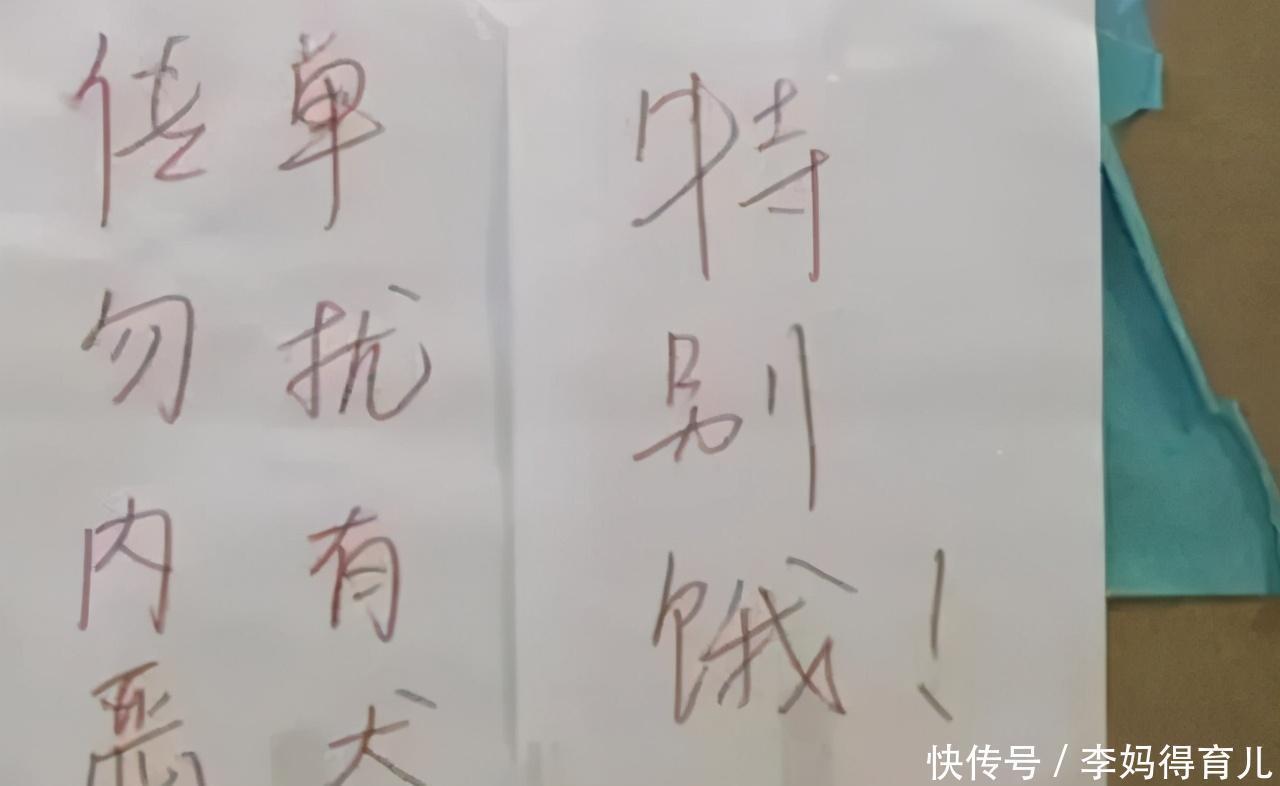 传单
勿扰
内有
恶犬
特
别
饿！
快传号 / 李妈得育儿